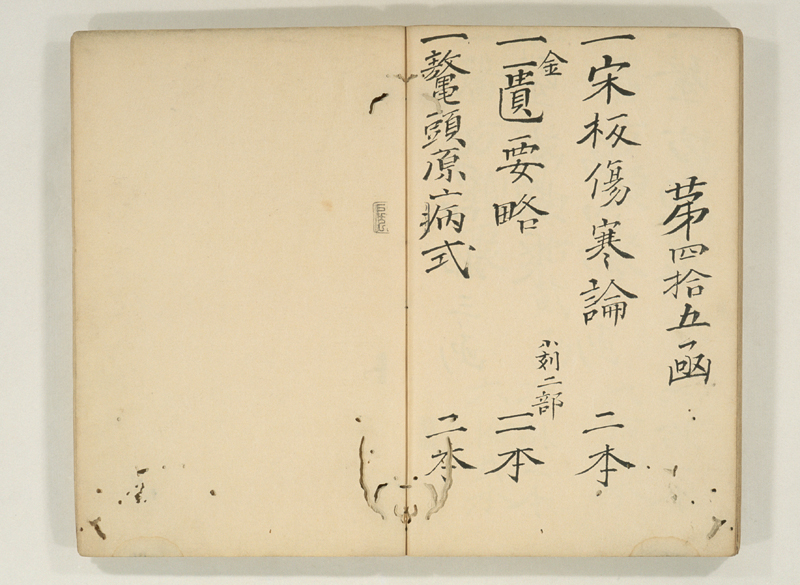 苐四拾五凾
一宋板傷寒論 二本
一金匱要略 小刻二部 二本
一鼇頭原病式 二本